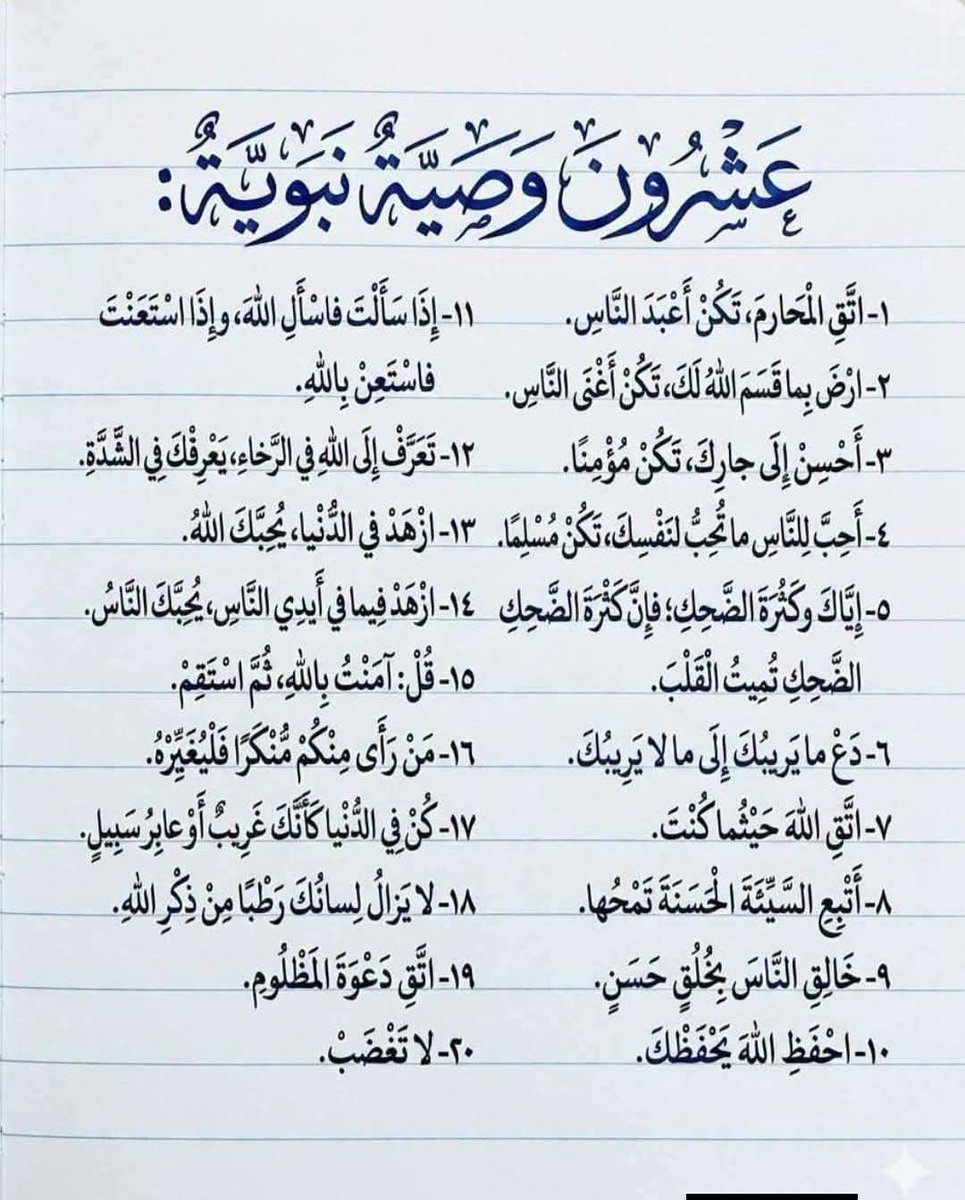 عَشْرُونَ وَصِيَّةٌ نَبَوِيَّةٌ:
١- اتَّقِ الْمَحَارِمَ، تَكُنْ أَعْبَدَ النَّاسِ.
٢- ارْضَ بِما قَسَمَ اللهُ لَكَ، تَكُنْ أَغْنَى النَّاسِ.
٣- أَحْسِنْ إِلَى جارِكَ، تَكُنْ مُؤْمِنًا.
٤- أَحِبَّ لِلنَّاسِ ما تُحِبُّ لنَفْسِكَ، تَكُنْ مُسْلِمًا.
٥- إِيَّاكَ وكَثُرَةَ الضَّحِكِ؛ فإِنَّ كَثْرَةَ الضَّحِكِ
الضَّحِكِ تُمِيتُ الْقَلْبَ.
٦- دَعْ ما يَرِيبُكَ إِلَى ما لا يَرِيبُكَ.
٧- اتَّقِ اللهَ حَيْثُما كُنْتَ.
٨- أَتْبِعِ السَّيِّئَةَ الْحَسَنَةَ تَمْحُها.
٩- خَالِقِ النَّاسَ بِخُلُقٍ حَسَنٍ.
١٠- احْفَظِ اللهَ يَحْفَظْكَ.
١١- إِذَا سَأَلْتَ فاسْأَلِ اللهَ، وإِذَا اسْتَعَنْتَ
فاسْتَعِنْ بِاللهِ.
١٢- تَعَرَّفْ إِلَى اللهِ فِي الرَّخاءِ، يَعْرِفْكَ فِي الشَّدَّةِ.
١٣- ازْهَدْ في الدُّنْيا، يُحِبَّكَ اللهُ.
١٤- ازْهَدْ فِيما في أَيدِي النَّاسِ، يُحِبَّكَ النَّاسُ.
١٥- قُلْ: آمَنْتُ بِاللهِ، ثُمَّ اسْتَقِمْ.
١٦- مَنْ رَأَى مِنْكُمْ مُّنْكَرًا فَلْيُغَيِّرْهُ.
١٧- كُنْ فِي الدُّنْيا كَأَنَّكَ غَرِيبٌ أَوْ عابِرُ سَبِيلٍ.
١٨- لا يَزالُ لِسانُكَ رَطْبًا مِنْ ذِكْرِ اللهِ.
١٩- اتَّقِ دَعْوَةَ المَظْلُومِ.
٢٠- لا تَغْضَبْ.